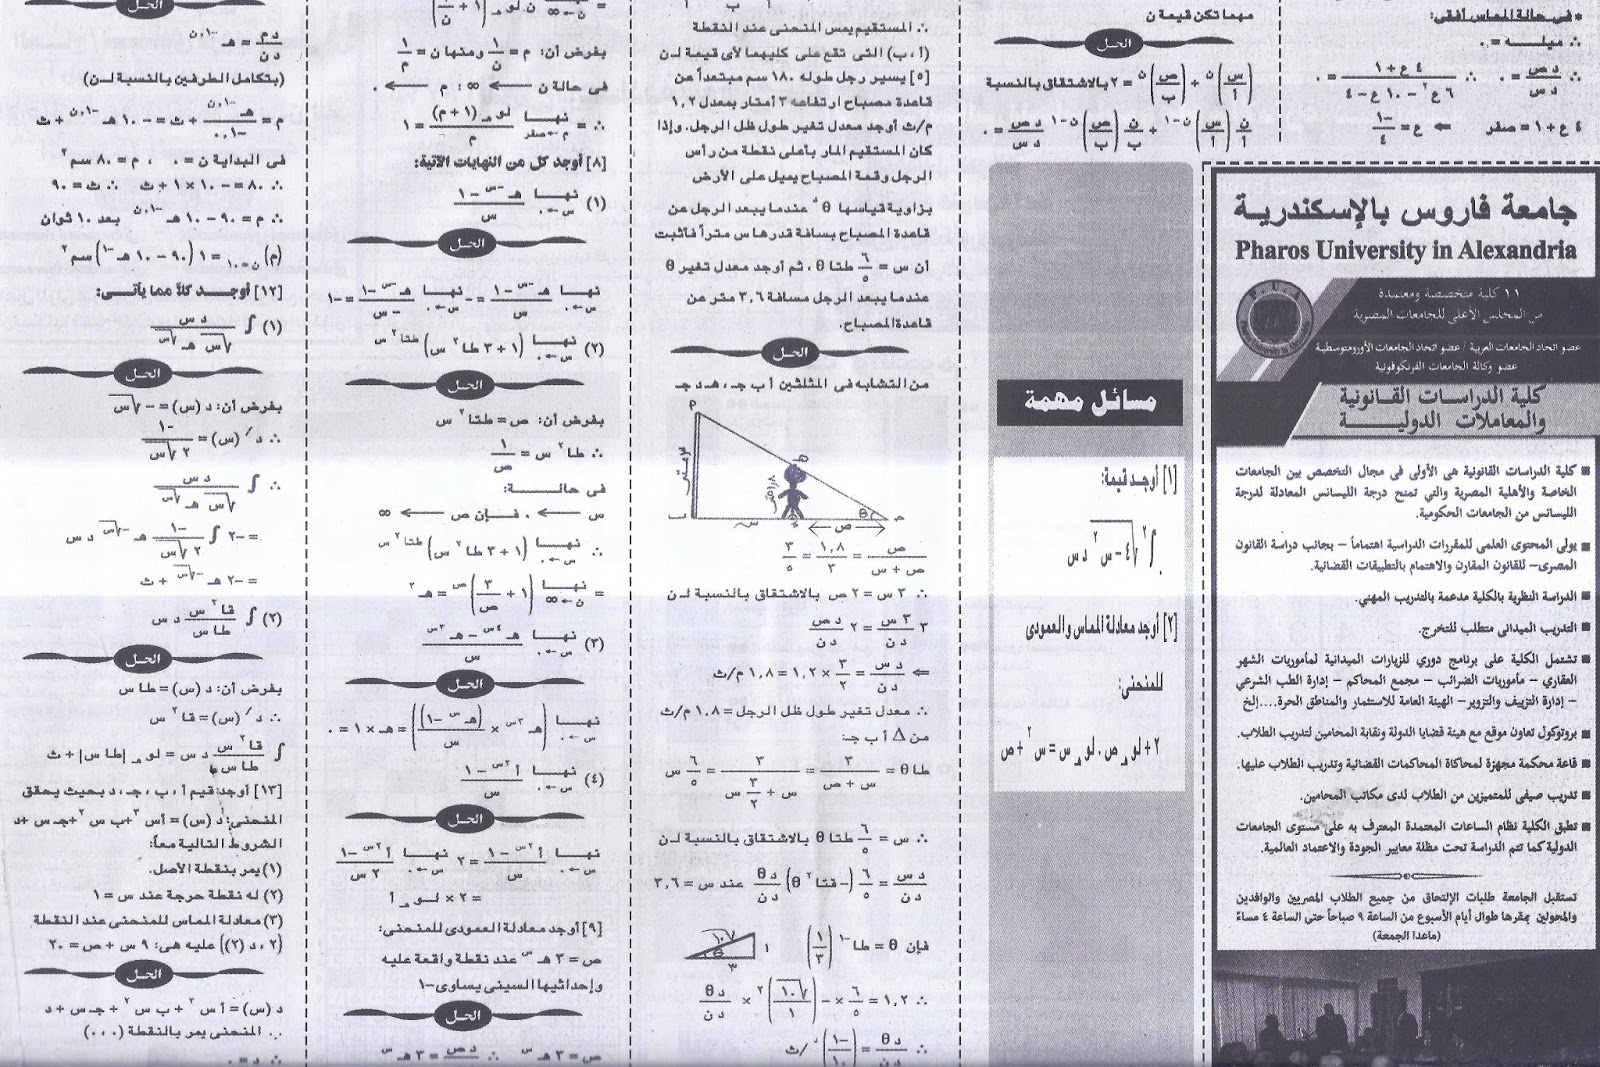 * فى حالة المماس أفقى:
∴ ميله = ٠
∴ د ص / د س = ٠ ∴ (٤ ع + ١) / (٦ ع٢ - ١٠ ع - ٤) = ٠
٤ ع + ١ = صفر ⇐ ع = -١ / ٤
جامعة فاروس بالإسكندرية
Pharos University in Alexandria
١١ كلية متخصصة ومعتمدة
من المجلس الأعلى للجامعات المصرية
عضو اتحاد الجامعات العربية / عضو اتحاد الجامعات الأورومتوسطية
عضو وكالة الجامعات الفرنكوفونية
كلية الدراسات القانونية
والمعاملات الدولية
■ كلية الدراسات القانونية هى الأولى فى مجال التخصص بين الجامعات
الخاصة والأهلية المصرية والتي تمنح درجة الليسانس المعادلة لدرجة
الليسانس من الجامعات الحكومية.
■ يولى المحتوى العلمي للمقررات الدراسية اهتماماً – بجانب دراسة القانون
المصرى– للقانون المقارن والاهتمام بالتطبيقات القضائية.
■ الدراسة النظرية بالكلية مدعمة بالتدريب المهني.
■ التدريب الميدانى متطلب للتخرج.
■ تشتمل الكلية على برنامج دوري للزيارات الميدانية لمأموريات الشهر
العقاري – مأموريات الضرائب – مجمع المحاكم – إدارة الطب الشرعي
– إدارة التزييف والتزوير – الهيئة العامة للاستثمار والمناطق الحرة....إلخ
■ بروتوكول تعاون موقع مع هيئة قضايا الدولة ونقابة المحامين لتدريب الطلاب.
■ قاعة محكمة مجهزة لمحاكاة المحاكمات القضائية وتدريب الطلاب عليها.
■ تدريب صيفى للمتميزين من الطلاب لدى مكاتب المحامين.
■ تطبق الكلية نظام الساعات المعتمدة المعترف به على مستوى الجامعات
الدولية كما تتم الدراسة تحت مظلة معايير الجودة والاعتماد العالمية.
تستقبل الجامعة طلبات الإلتحاق من جميع الطلاب المصريين والوافدين
والمحولين بمقرها طوال أيام الأسبوع من الساعة ٩ صباحاً حتى الساعة ٤ مساءً
(ماعدا الجمعة)
مهما تكن قيمة ن
الحل
(س/أ)ن + (ص/ب)ن = ٢ بالاشتقاق بالنسبة
ن/أ (س/أ)ن-١ + ن/ب (ص/ب)ن-١ د ص / د س = ٠
مسائل مهمة
[١] أوجد قيمة:
∫٠٢ √(٤ - س٢) د س
[٢] أوجد معادلة المماس والعمودى
للمنحنى:
٢ + لوهـ ص . لوهـ س = س٢ + ص
∴ المستقيم يمس المنحنى عند النقطة
(أ ، ب) التى تقع على كليهما لأى قيمة لـ ن
[٥] يسير رجل طوله ١٨٠ سم مبتعداً عن
قاعدة مصباح ارتفاعه ٣ أمتار بمعدل ١,٢
م/ث أوجد معدل تغير طول ظل الرجل. وإذا
كان المستقيم المار بأعلى نقطة من رأس
الرجل وقمة المصباح يميل على الأرض
بزاوية قياسها θ° عندما يبعد الرجل عن
قاعدة المصباح بسافة قدرها س متراً فأثبت
أن س = ٦/٥ طتا θ ، ثم أوجد معدل تغير θ
عندما يبعد الرجل مسافة ٣,٦ متر عن
قاعدة المصباح.
الحل
من التشابه فى المثلثين أ ب جـ ، هـ د جـ
ص / (ص + س) = ١,٨ / ٣ = ٣ / ٥
∴ ٣ س = ٢ ص بالاشتقاق بالنسبة لـ ن
٣ د س / د ن = ٢ د ص / د ن
⇐ د س / د ن = ٣/٢ × ١,٢ = ١,٨ م/ث
∴ معدل تغير طول ظل الرجل = ١,٨ م/ث
من Δ أ ب جـ:
طا θ = ٣ / (س + ص) = ٣ / (س + ٣/٢ س) = ٦ / ٥ س
∴ س = ٦/٥ طتا θ بالاشتقاق بالنسبة لـ ن
د س / د ن = ٦/٥ (- قتا٢ θ) د θ / د ن عند س = ٣,٦
فإن θ = طا-١ (١/٣)
∴ ١,٢ = ٦/٥ × - (√١٠ / ١)٢ × د θ / د ن
∴ د θ / د ن = (-١ / ١٠)د /ث
بفرض أن: م = ١/ن ومنها ن = ١/م
فى حالة ن ← ∞ : م ← ٠
∴ = نهــا م←صفر لوهـ (١ + م) / م = ١
[٨] أوجد كل من النهايات الآتية:
(١) نهــا س←٠ (هـ-س - ١) / س
الحل
نهــا س←٠ (هـ-س - ١) / س = - نهــا س←٠ (هـ-س - ١) / -س = -١
(٢) نهــا س←٠ (١ + ٣ طا٢ س)طتا٢ س
الحل
بفرض أن: ص = طتا٢ س
∴ طا٢ س = ١/ص
فى حالــــة:
س ← ٠ فــإن ص ← ∞
∴ نهــا س←٠ (١ + ٣ طا٢ س)طتا٢ س
= نهــا ن←∞ (١ + ٣/ص)ص = هـ٣
(٣) نهــا س←٠ (هـ٤س - هـ٣س) / س
الحل
نهــا س←٠ (هـ٣س × (هـس - ١) / س) = هـ٠ × ١ = ٠
(٤) نهــا س←٠ (أ٢س - ١) / س
الحل
نهــا س←٠ (أ٢س - ١) / س = ٢ نهــا س←٠ (أ٢س - ١) / ٢ س
= ٢ × لوهـ أ
[٩] أوجد معادلة العمودى للمنحنى:
ص = ٣ هـس عند نقطة واقعة عليه
وإحداثيها السينى يساوى -١
الحل
ص = ٣ هـس ∴ د ص / د س = ٣ هـس
الحل
د م / د ن = هـ-٠,١ ن
(بتكامل الطرفين بالنسبة لـ ن)
م = هـ-٠,١ ن / -٠,١ + ث = -١٠ هـ-٠,١ ن + ث
فى البداية ن = ٠ ، م = ٨٠ سم٢
∴ ٨٠ = -١٠ × ١ + ث ∴ ث = ٩٠
∴ م = ٩٠ - ١٠ هـ-٠,١ ن بعد ١٠ ثوان
(م)ن=١٠ = (٩٠ - ١٠ هـ-١) سم٢
[١٢] أوجــد كلاً مما يأتى:
(١) ∫ د س / (√س هـ√س)
الحل
بفرض أن: د (س) = -√س
∴ د/ (س) = -١ / ٢√س
∴ ∫ د س / (√س هـ√س)
= -٢ ∫ -١ / ٢√س هـ-√س د س
= -٢ هـ-√س + ث
(٢) ∫ قا٢ س / طا س د س
الحل
بفرض أن: د (س) = طا س
∴ د/ (س) = قا٢ س
∫ قا٢ س / طا س د س = لوهـ |طا س| + ث
[١٣] أوجد قيم أ ، ب ، جـ ، د بحيث يحقق
المنحنى: د (س) = أس٣+ب س٢+جـ س+د
الشروط التالية معاً:
(١) يمر بنقطة الأصل.
(٢) له نقطة حرجة عند س = ١
(٣) معادلة المماس للمنحنى عند النقطة
(٢ ، د (٢)) عليه هى: ٩ س + ص = ٢٠
الحل
د (س) = أ س٣ + ب س٢ + جـ س + د
∵ المنحنى يمر بالنقطة (٠،٠)
∴ د = ٠